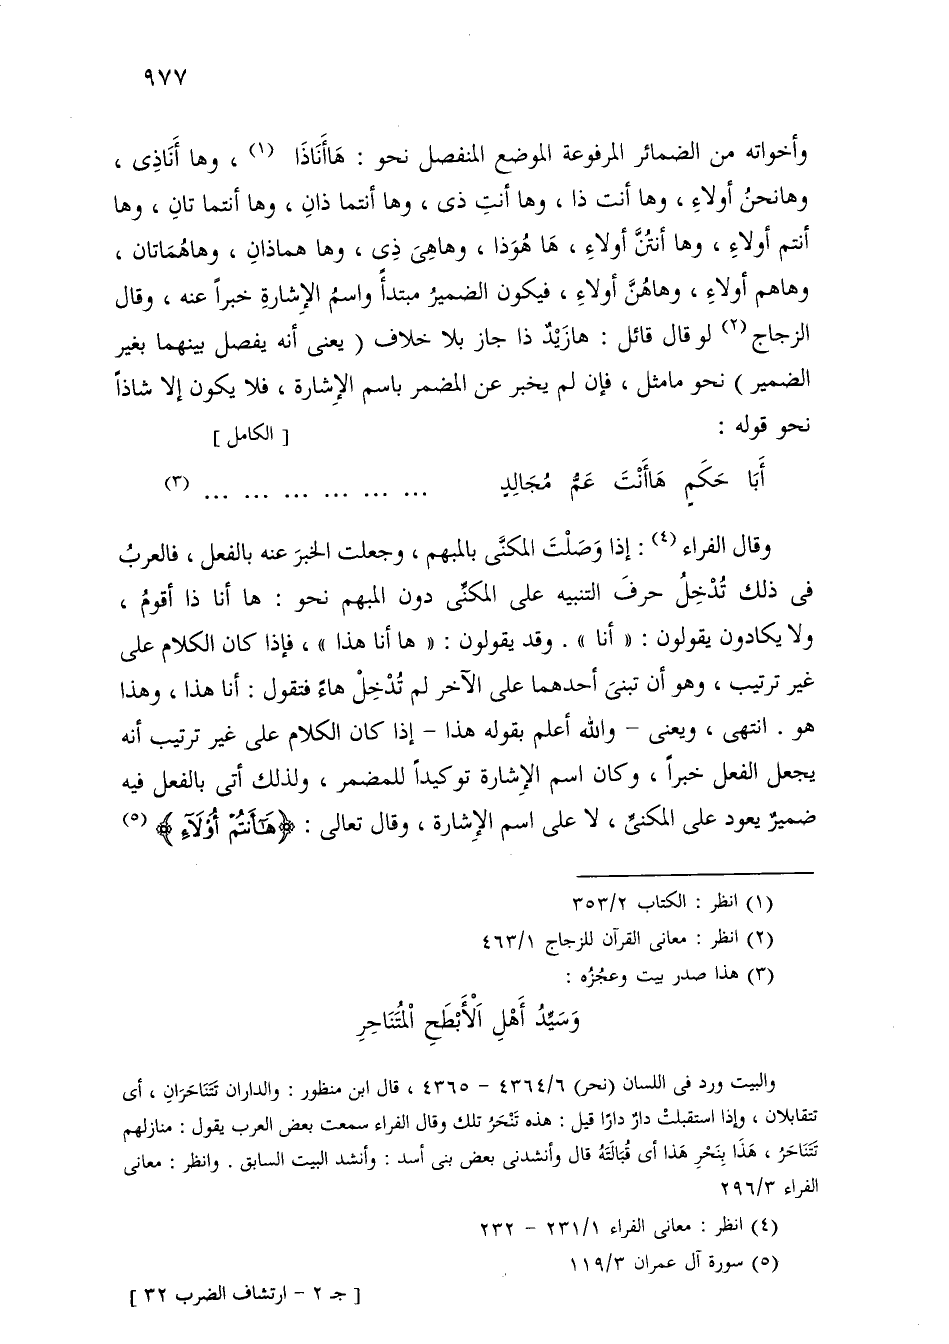 ٩٧٧
وأخواته من الضمائر المرفوعة الموضع المنفصل نحو : هَاأَنَاذَا (١) ، وها أَنَاذِى ،
وهانحنُ أولاءِ ، وها أنت ذا ، وها أنتِ ذى ، وها أنتما ذانِ ، وها أنتما تانِ ، وها
أنتم أولاءِ ، وها أنتُنَّ أولاءِ ، هَا هُوَذا ، وهاهِىَ ذِى ، وها هماذانِ ، وهاهُمَاتان ،
وهاهم أولاءِ ، وهاهُنَّ أولاءِ ، فيكون الضميرُ مبتدأً واسمُ الإِشارةِ خبراً عنه ، وقال
الزجاج (٢) لو قال قائل : هازَيْدٌ ذا جاز بلا خلاف ( يعنى أنه يفصل بينهما بغير
الضمير ) نحو مامثل ، فإن لم يخبر عن المضمر باسم الإِشارة ، فلا يكون إلا شاذاً
نحو قوله : [ الكامل ]
أَبَا حَكَمٍ هَاأَنْتَ عَمُّ مُجَالِدٍ ... ... ... ... ... ... (٣)
وقال الفراء (٤) : إذا وَصَلْتَ المكنَّى بالمبهم ، وجعلت الخبرَ عنه بالفعل ، فالعربُ
فى ذلك تُدْخِلُ حرفَ التنبيه على المكنِّى دون المبهم نحو : ها أنا ذا أقومُ ،
ولا يكادون يقولون : « أنا » . وقد يقولون : « ها أنا هذا » ، فإذا كان الكلام على
غير ترتيب ، وهو أن تبنىَ أحدهما على الآخر لم تُدْخِلْ هاءً فتقول : أنا هذا ، وهذا
هو . انتهى ، ويعنى – والله أعلم بقوله هذا – إذا كان الكلام على غير ترتيب أنه
يجعل الفعل خبراً ، وكان اسم الإِشارة توكيداً للمضمر ، ولذلك أتى بالفعل فيه
ضميرٌ يعود على المكنىِّ ، لا على اسم الإِشارة ، وقال تعالى : ﴿هَٰٓأَنتُمْ أُوْلَآءِ﴾ (٥)
(١) انظر : الكتاب ٣٥٣/٢
(٢) انظر : معانى القرآن للزجاج ٤٦٣/١
(٣) هذا صدر بيت وعجُزُه :
وَسَيِّدُ أَهْلِ اَلْأَبْطَحِ اْلمُتَنَاحِرِ
والبيت ورد فى اللسان (نحر) ٤٣٦٤/٦ – ٤٣٦٥ ، قال ابن منظور : والداران تَتَنَاحَرَانِ ، أى
تتقابلان ، وإذا استقبلتْ دارٌ دارًا قيل : هذه تَنْحَرُ تلك وقال الفراء سمعت بعض العرب يقول : منازلهم
تَتَنَاحَرُ ، هَذَا بِنَحْرِ هَذا أى قُبَالَتَهُ قال وأنشدنى بعض بنى أسد : وأنشد البيت السابق . وانظر : معانى
الفراء ٢٩٦/٣
(٤) انظر : معانى الفراء ٢٣١/١ – ٢٣٢
(٥) سورة آل عمران ١١٩/٣
[ جـ ٢ – ارتشاف الضرب ٣٢ ]